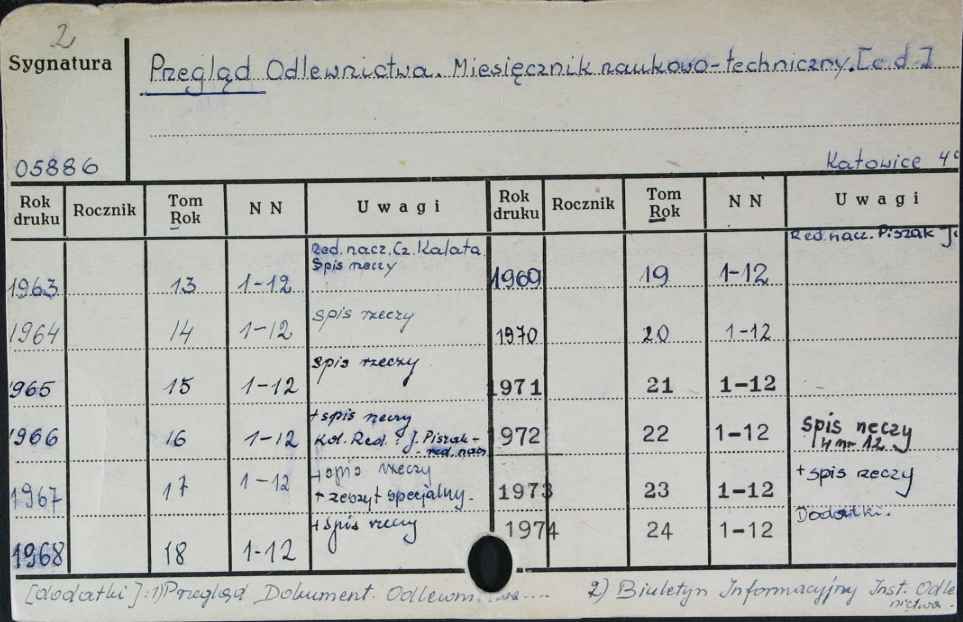 2
Sygnatura
Przegląd Odlewnictwa. Miesięcznik naukowo-techniczny. [c d.]
05886
Katowice 4°
Rok druku Rocznik Tom Rok N N Uwagi Rok druku Rocznik Tom Rok N N Uwagi
1963 13 1-12 Red. nacz. Cz. Kalata. Spis rzeczy 1969 19 1-12 Red. nacz. Piszak J.
1964 14 1-12 spis rzeczy 1970 20 1-12
1965 15 1-12 spis rzeczy 1971 21 1-12
1966 16 1-12 + spis rzeczy Kol. Red.: J. Piszak - red. nacz. 1972 22 1-12 spis rzeczy w nr 12
1967 17 1-12 + spis rzeczy + zeszyt specjalny. 1973 23 1-12 + spis rzeczy
1968 18 1-12 + spis rzeczy 1974 24 1-12 Dodatki.
[dodatki]: 1) Przegląd Dokument. Odlewn.... 2) Biuletyn Informacyjny Inst. Odle
nictwa.